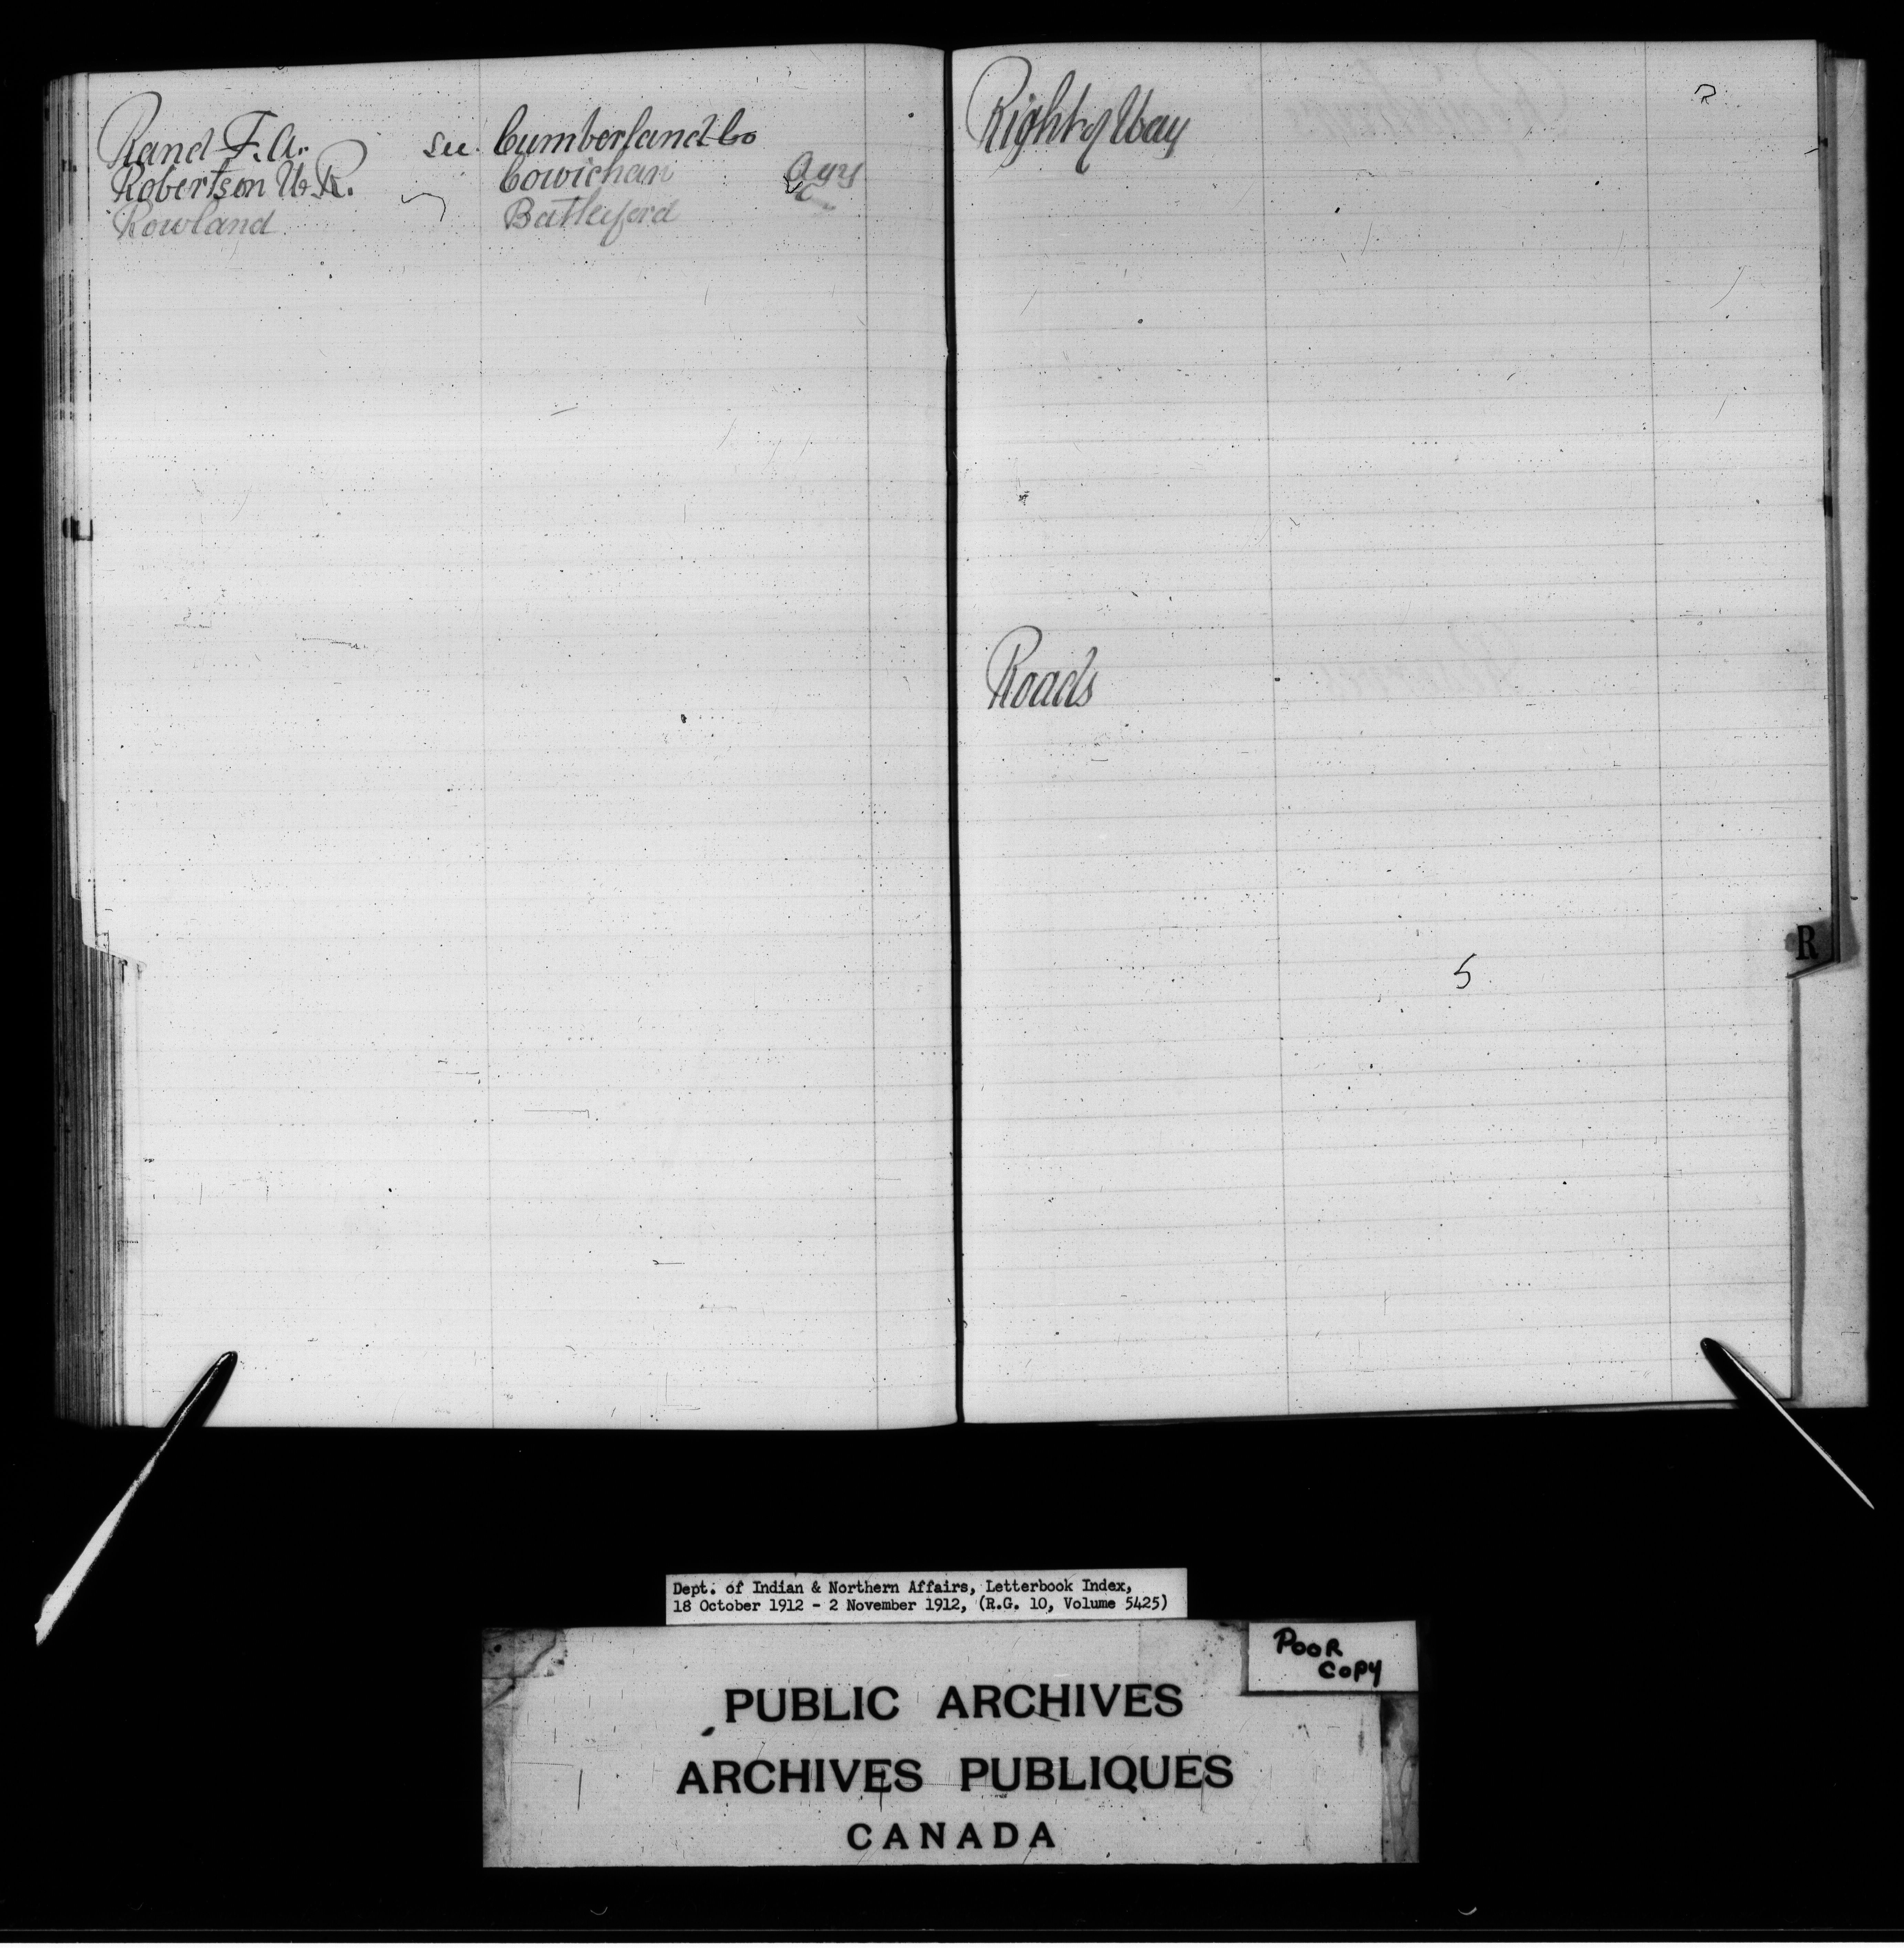 Rand F. A. see Cumberland Co
Robertson W. R. Cowichan Agy
Rowland Battleford
Right of Way
Roads
R
Dept. of Indian & Northern Affairs, Letterbook Index,
18 October 1912 - 2 November 1912, (R.G. 10, Volume 5425)
POOR
COPY
PUBLIC ARCHIVES
ARCHIVES PUBLIQUES
CANADA